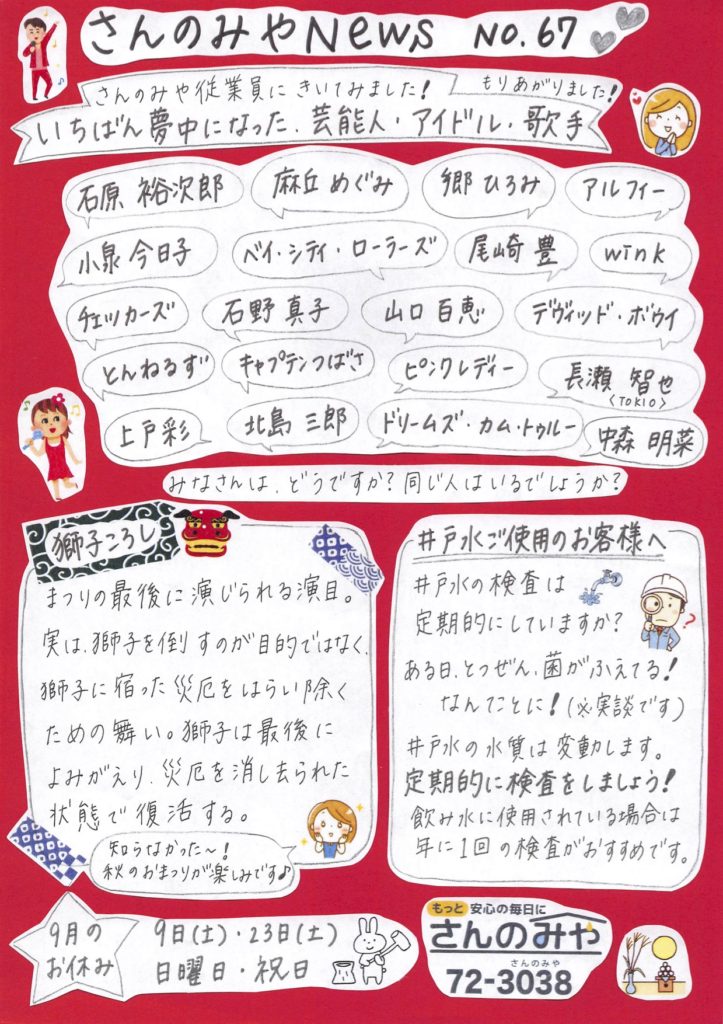 さんのみやNews NO.67
さんのみや従業員にきいてみました！
もりあがりました！
いちばん夢中になった、芸能人・アイドル・歌手
石原 裕次郎
麻丘 めぐみ
郷 ひろみ
アルフィー
小泉 今日子
ベイ・シティ・ローラーズ
尾崎 豊
wink
チェッカーズ
石野 真子
山口 百恵
デヴィッド・ボウイ
とんねるず
キャプテンつばさ
ピンクレディー
長瀬 智也
〈TOKIO〉
上戸彩
北島 三郎
ドリームズ・カム・トゥルー
中森 明菜
みなさんは、どうですか？同じ人はいるでしょうか？
獅子ころし
まつりの最後に演じられる演目。
実は、獅子を倒すのが目的ではなく、
獅子に宿った災厄をはらい除く
ための舞い。獅子は最後に
よみがえり、災厄を消し去られた
状態で復活する。
知らなかった〜！
秋のおまつりが楽しみです♪
井戸水ご使用のお客様へ
井戸水の検査は
定期的にしていますか？
ある日、とつぜん、菌がふえてる！
なんてことに！(※実談です)
井戸水の水質は変動します。
定期的に検査をしましょう！
飲み水に使用されている場合は
年に1回の検査がおすすめです。
9月の
お休み
9日(土)・23日(土)
日曜日・祝日
もっと 安心の毎日に
さんのみや
さんのみや
72-3038